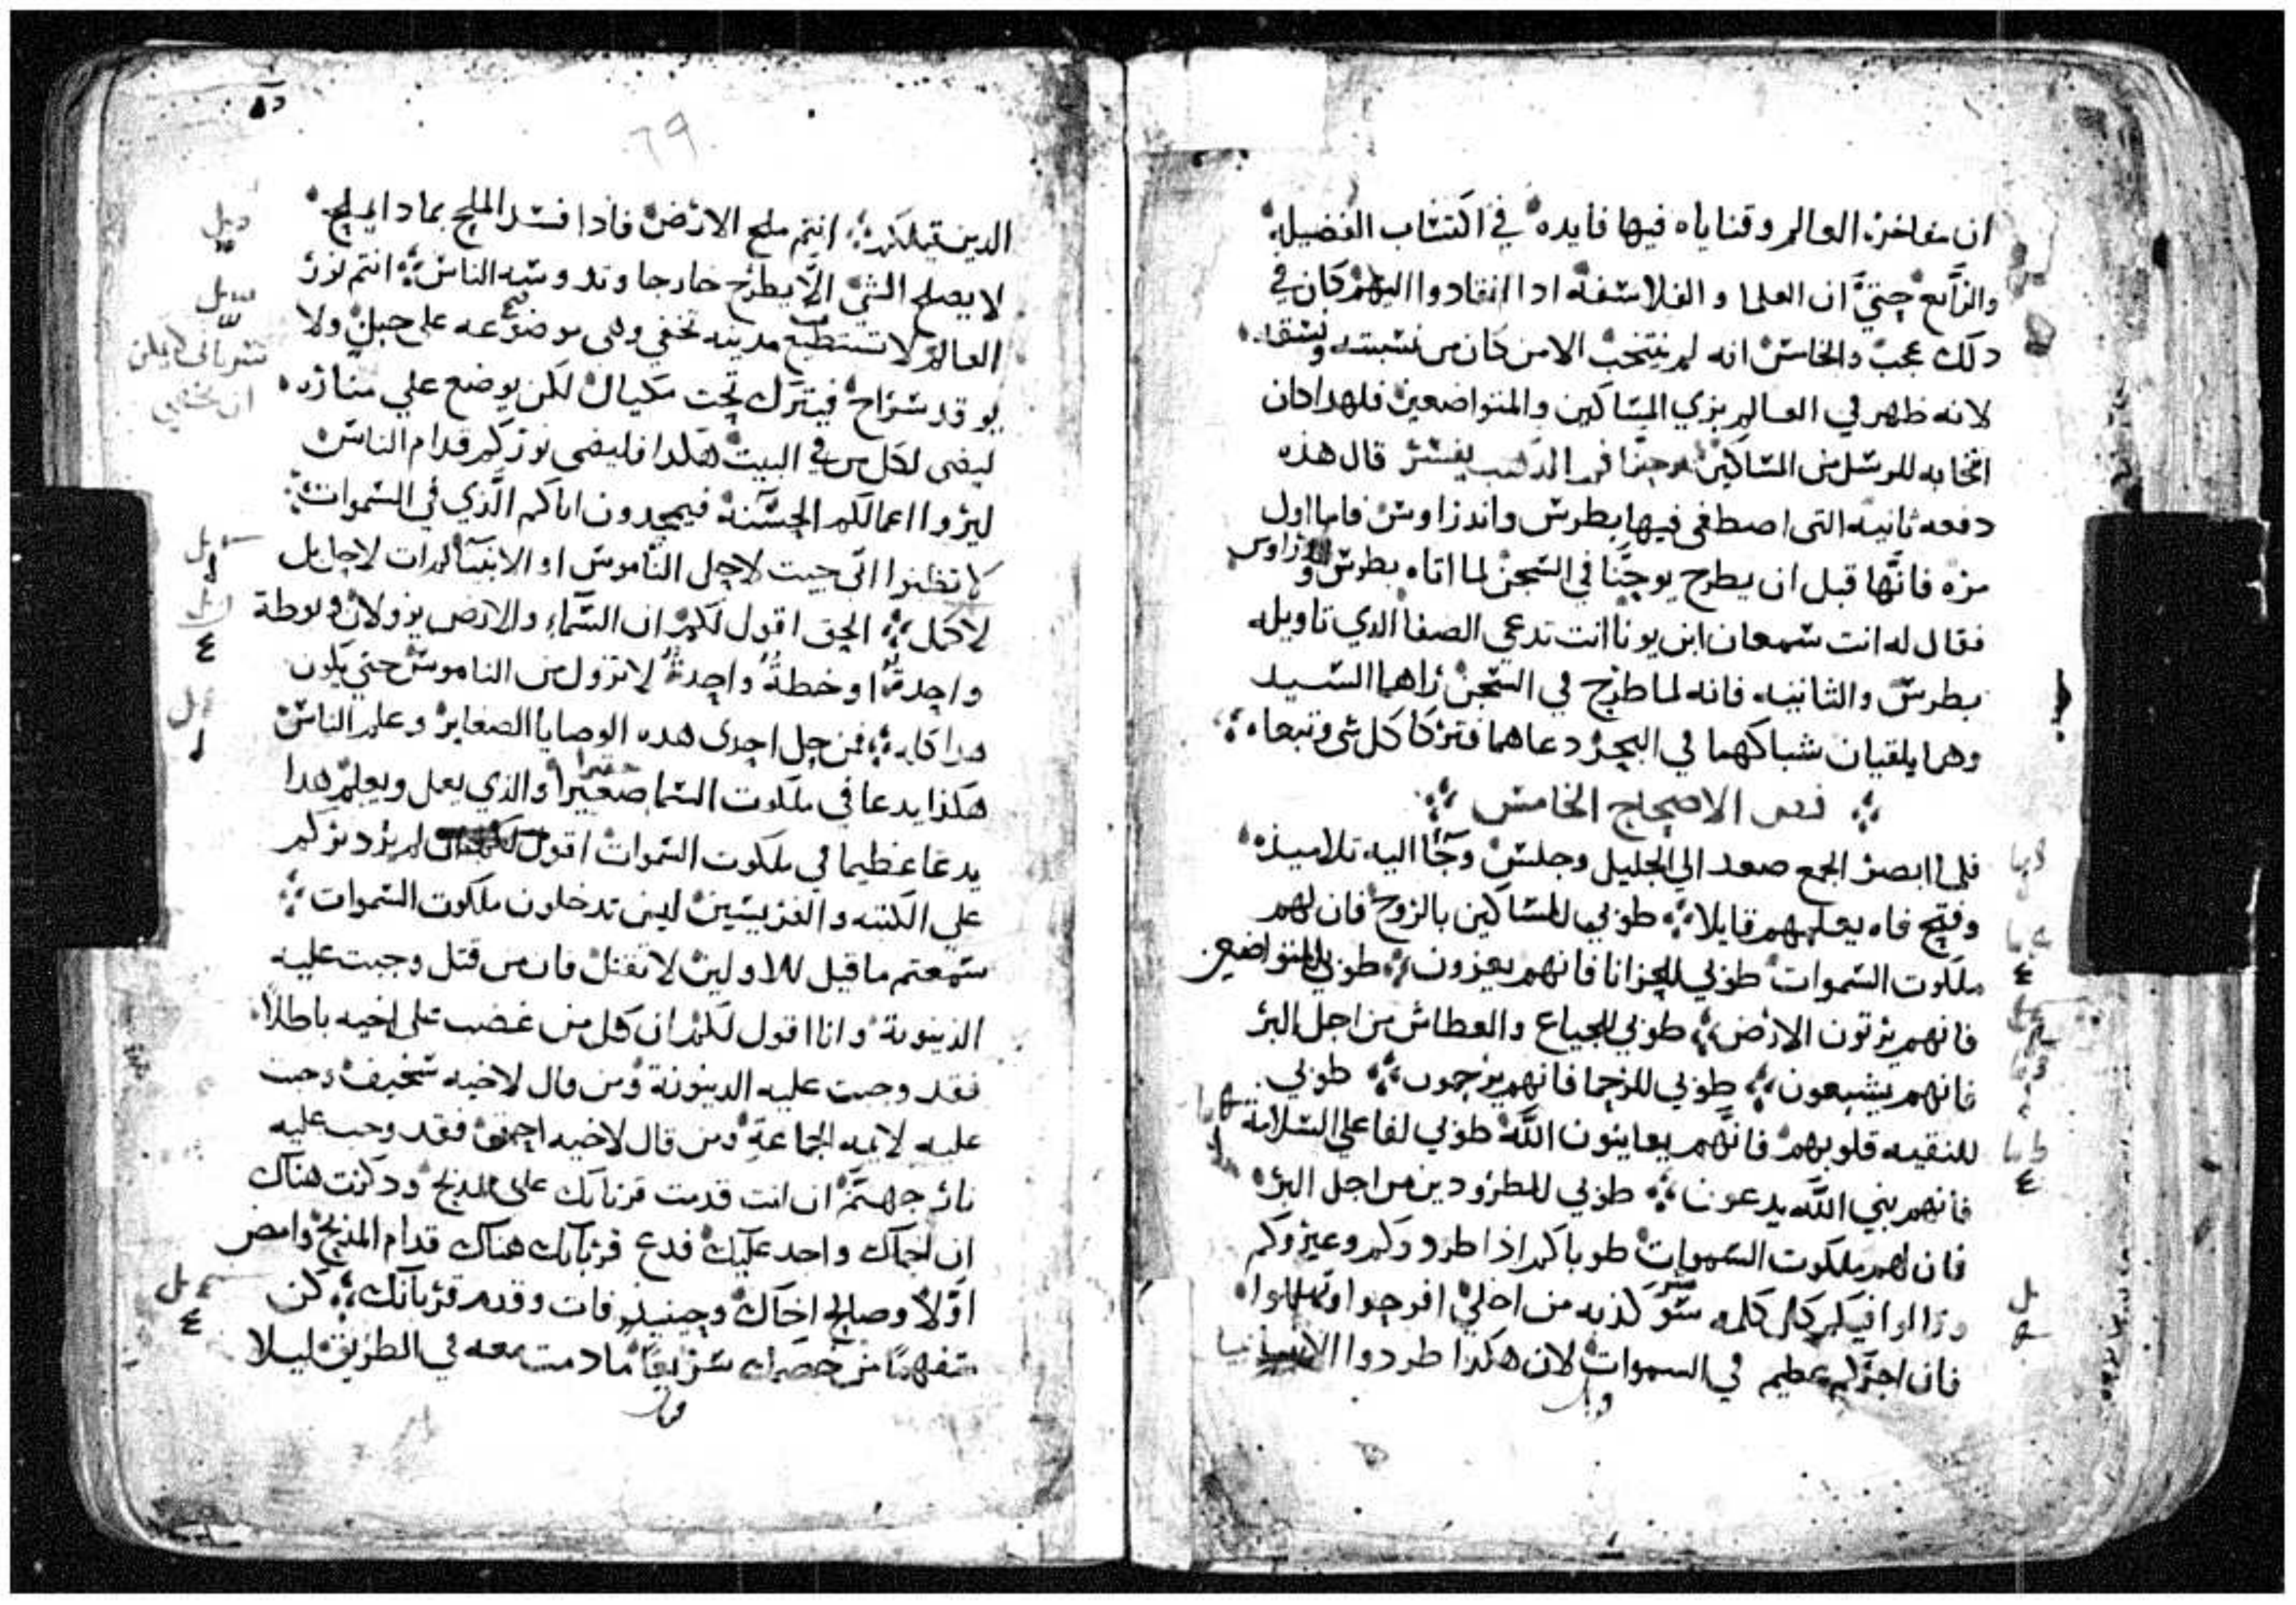 ان مفاخرة العالم وقناياه فيها فايده في اكتساب الفضيله
والرابع حتي ان العلما والفلاسفه ادا انقادوا اليهم كان في
دلك عجب والخامس انه لم ينتخب الا من كان من نسبته
لانه ظهر في العالم بزي المساكين والمتواضعين فلهدا كان
انتخابه للرسل من المساكين يوحنا فم الدهب يفسر قال هذه
دفعه ثانيه التي اصطفي فيها بطرس واندراوس فاما اول
مره فانها قبل ان يطرح يوحنا في السجن لما اتاه بطرس واندراوس
فقال له انت سمعان ابن يونا انت تدعي الصفا الدي تاويله
بطرس والثانيه فانه لما طرح في السجن راهما السيد
وهما يلقيان شباكهما في البحر دعاهما فتركا كل شي وتبعاه
فص الاصحاح الخامس
فلما ابصر الجمع صعد الي الجليل وجلس وجآ اليه تلاميذه
وفتح فاه يعلمهم قايلا طوبي للمساكين بالروح فان لهم
ملكوت السموات طوبي للحزانا فانهم يعزون طوبي للمتواضعين
فانهم يرتون الارض طوبي للجياع والعطاش من اجل البر
فانهم يشبعون طوبي للرحما فانهم يرحمون طوبي
للنقيه قلوبهم فانهم يعاينون الله طوبي لفاعلي السلامة
فانهم بني الله يدعون طوبي للمطرودين من اجل البر
فان لهم ملكوت السموات طوباكم اذا طردوكم وعيروكم
وقالوا فيكم كل كلمه سو كذبه من اجلي افرحوا وتهللوا
فان اجركم عظيم في السموات لان هكدا طردوا الانبيا
٦٩
الدين قبلكم انتم ملح الارض فادا فسد الملح بمادا يملح
لا يصلح لشي الا يطرح خارجا وتدوسه الناس انتم نور
العالم لا تستطيع مدينه تخفي وهي موضوعه علي جبل ولا
يوقد سراج فيترك تحت مكيال لكن يوضع علي مناره
ليضي لكل من في البيت هكدا فليضي نوركم قدام الناس
ليروا اعمالكم الحسنة فيمجدون اباكم الذي في السموات
لا تظنوا اني جيت لاحل الناموس او الانبيآ لم ات لاحل بل
لاكمل الحق اقول لكم ان السمآء والارض يزولان ويوطة
واحدة او خطة واحدة لا تزول من الناموس حتي يكون
هدا كله فمن حل احدي هده الوصايا الصغاير وعلم الناس
هكذا يدعا في ملكوت السما صغيرا والذي يعمل ويعلم هدا
يدعا عظيما في ملكوت السموات اقول لكم ان لم يزد بركم
علي الكتبه والفريسين ليس تدخلون ملكوت السموات
سمعتم ما قيل للاولين لا تقتل فان من قتل وجبت عليه
الدينونة وانا اقول لكم ان كل من غضب علي اخيه باطلا
فقد وجبت عليه الدينونة ومن قال لاخيه سخيف وجبت
عليه لايمه الجماعة ومن قال لاخيه احمق فقد وجب عليه
نار جهنم ان انت قدمت قربانك علي المدبح ودكرت هناك
ان اخاك واجد عليك فدع قربانك هناك قدام المذبح وامض
اولا وصالح اخاك وحينيذ فات وقدم قربانك كن
متفهما من خصمك سريعا ما دمت معه في الطريق ليلا